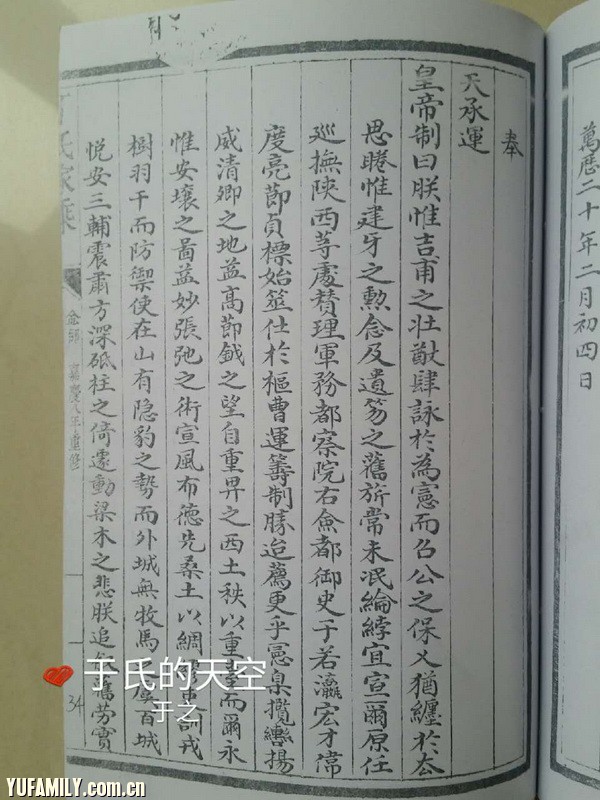 萬歷二十年二月初四日
奉
天承運
皇帝制曰朕惟吉甫之壯猷肆詠於為憲而召公之保乂猶纏於
思睠惟建牙之勲念及遺笏之舊旂常未泯綸綍宜宣爾原任
巡撫陝西等處賛理軍務都察院右僉都御史于若瀛宏才偉
度亮節貞標始筮仕於樞曹運籌制勝迨薦更乎憲臬攬轡揚
威清卿之地益高節鉞之望自重畀之西土秩以重臺而爾永
惟安壤之啚益妙張弛之術宣風布德先桑土以綢
樹羽干而防禦使在山有隐豹之勢而外城無牧馬
悅安三輔震肅方深砥柱之倚遽動梁木之悲朕追
氏家乘
嘉慶八年重修
34
于氏的天空
于之
YUFAMILY.com.cn